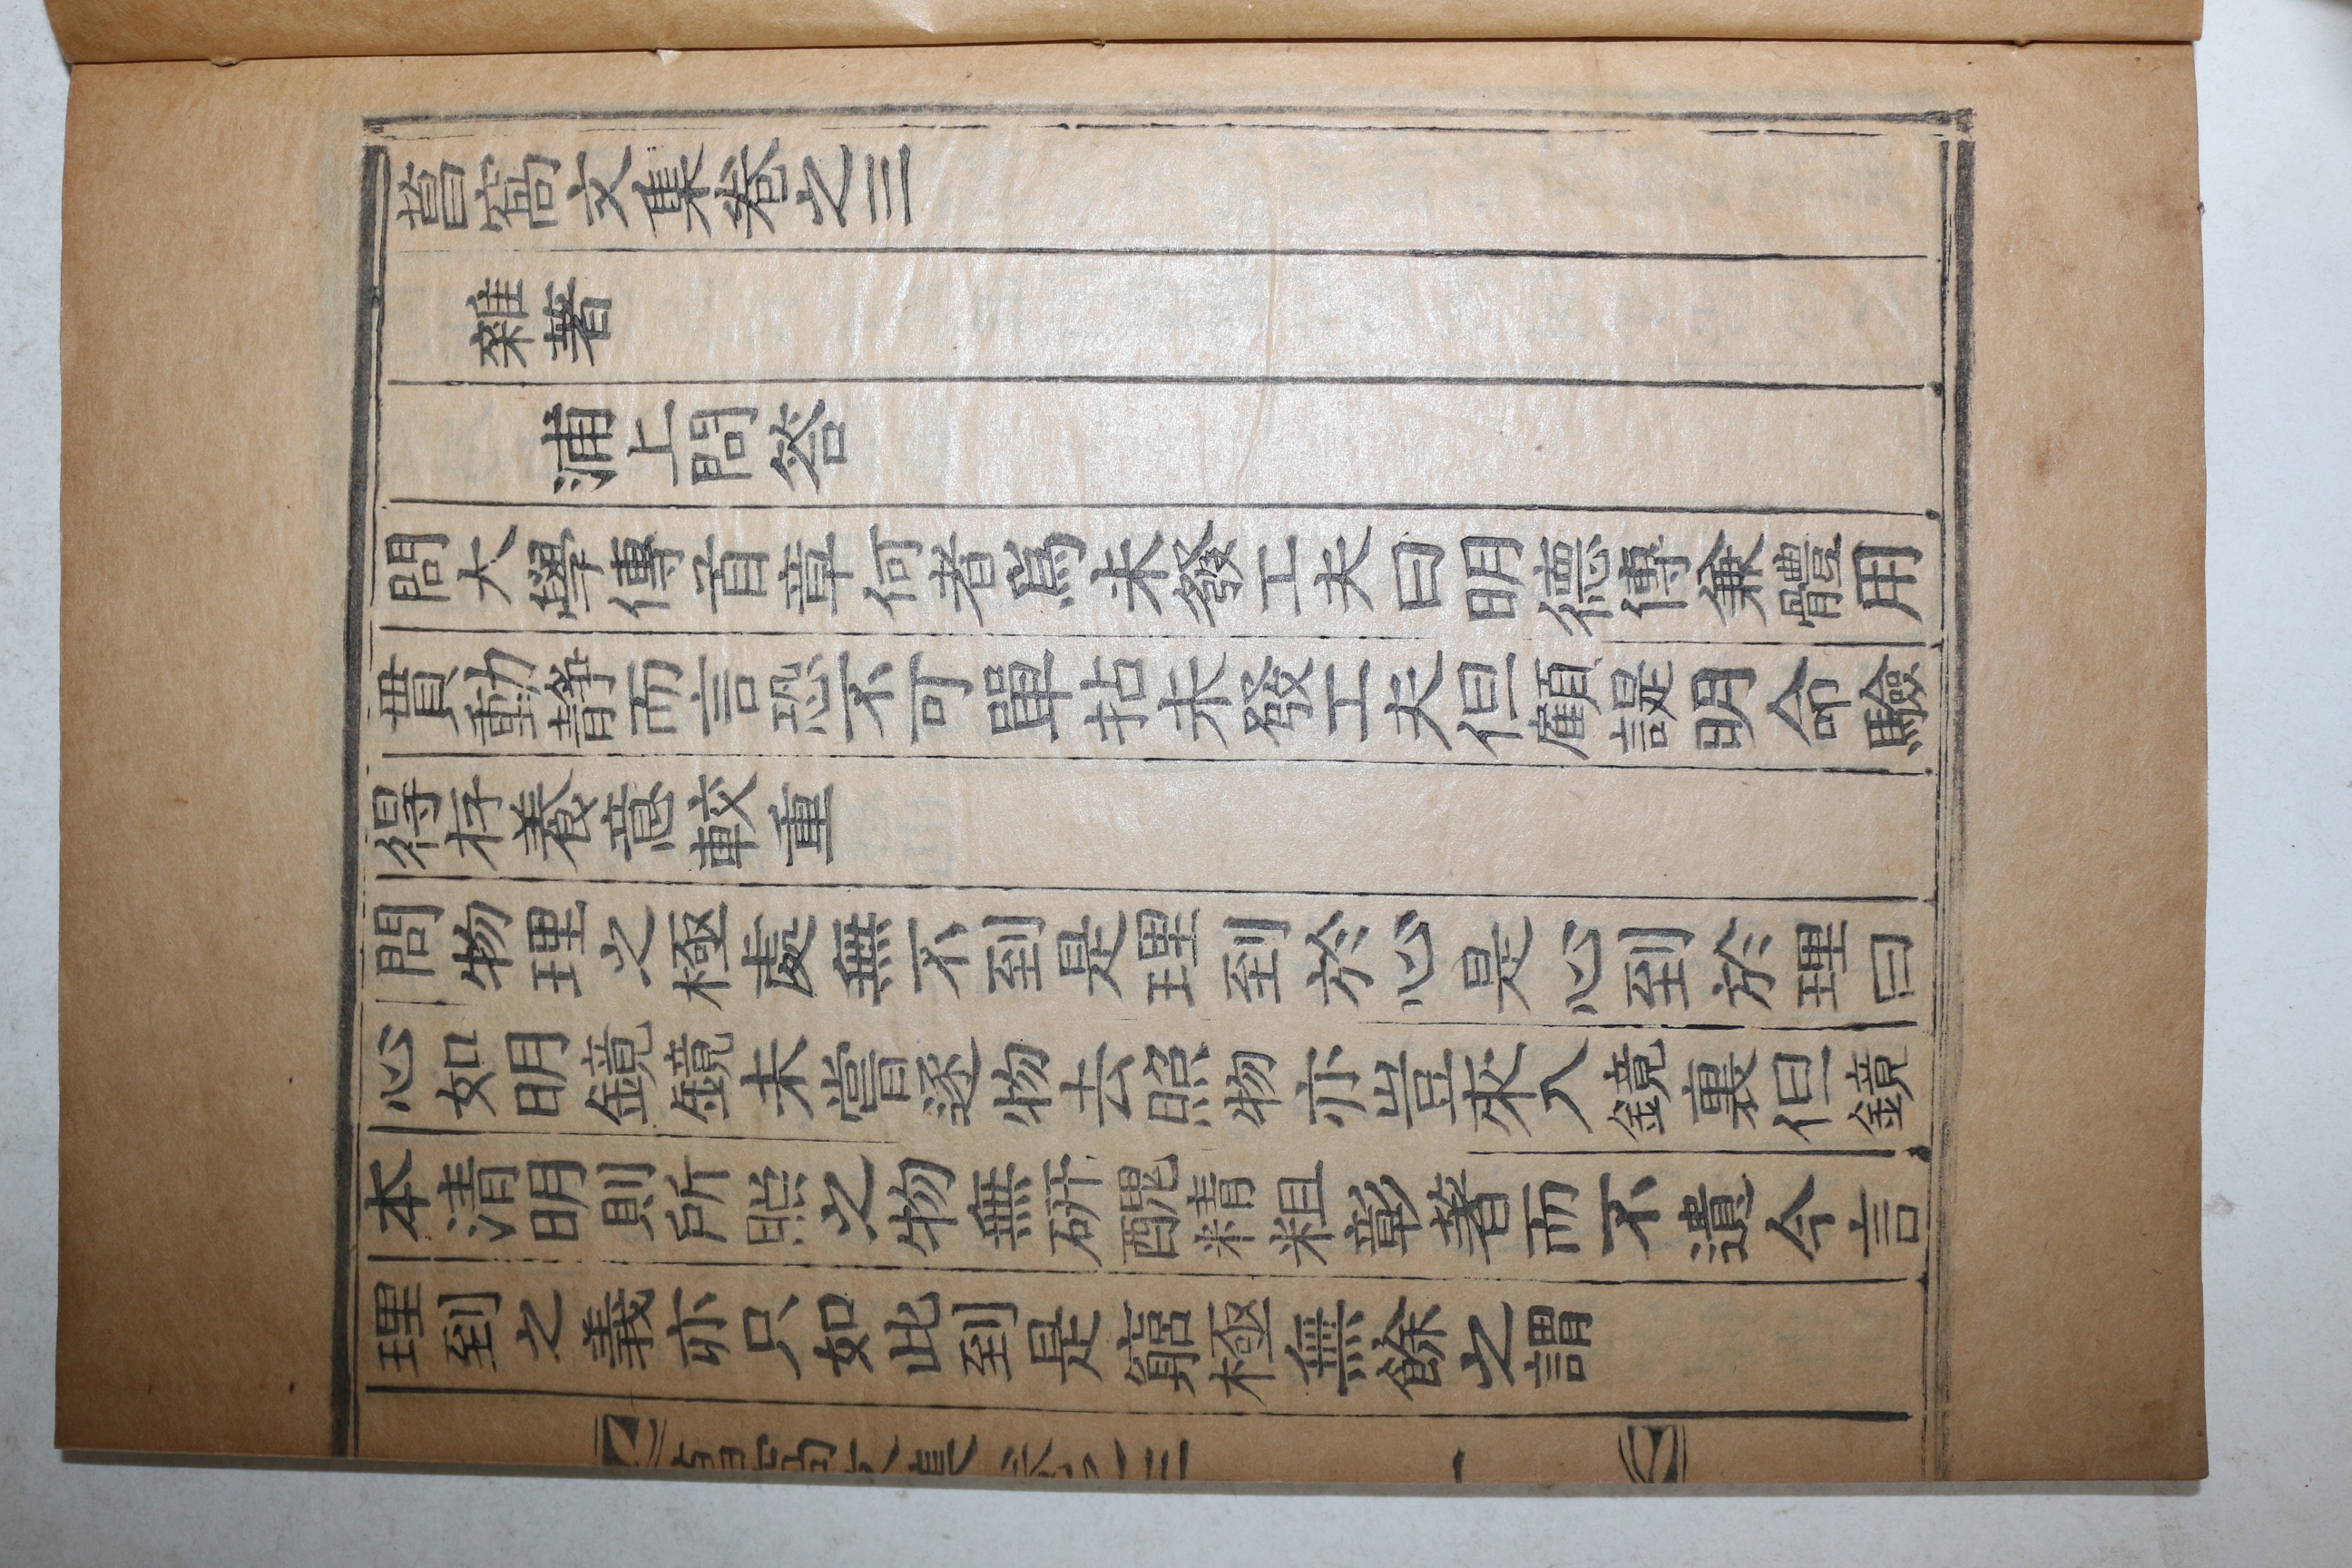 菖窩文集卷之三
雜著
浦上問答
問大學傳首章何者爲未發工夫曰明德傳兼體用
貫動靜而言恐不可單拈未發工夫但顧諟明命驗
得存養意較重
問物理之極處無不到是理到於心是心到於理曰
心如明鏡鏡未嘗逐物去照物亦豈來入鏡裏但鏡
本淸明則所照之物無硏醜精粗彰著而不遺今言
理到之義亦只如此到是窮極無餘之謂